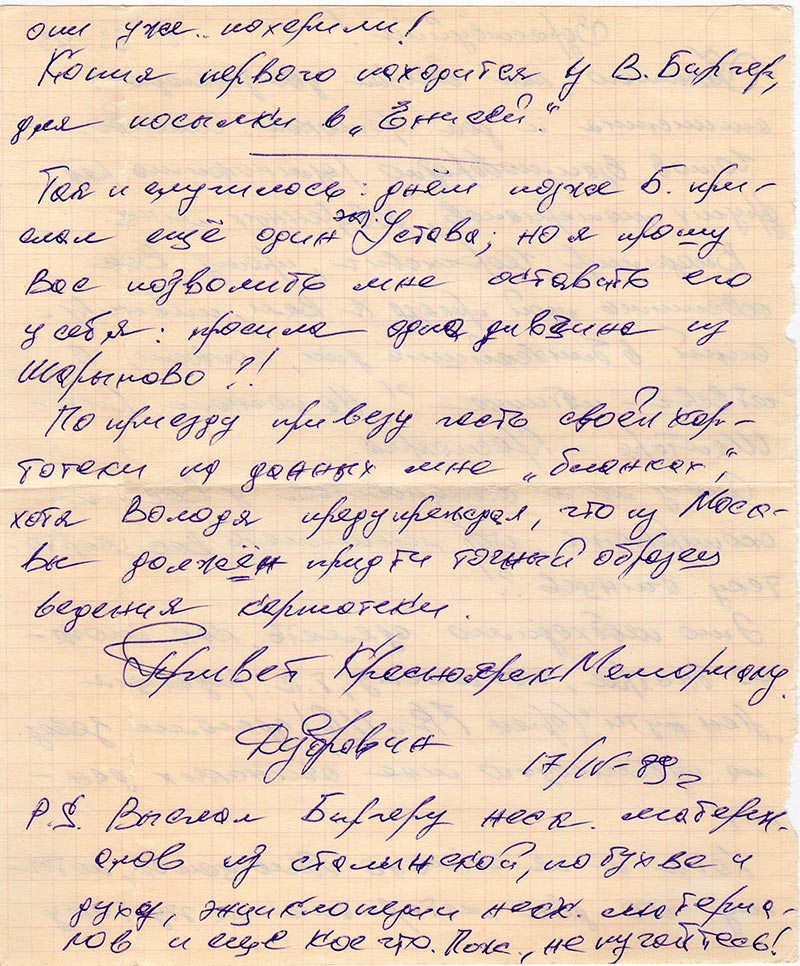 они уже.. похерили!
Копия первого находится у В. Биргер,
для посылки в „Енисей".
Так и случилось: днём позже Б. при-
слал ещё один экз. Устава; но я прошу
Вас позволить мне оставить его
у себя: просила одна дивчина из
Шарыпово?!
По приезду привезу часть своей кар-
тотеки на данных мне „бланках",
хотя Володя предупреждал, что из Моск-
вы должен придти точный образец
ведения картотеки.
Привет Красноярск Мемориалу.
17/IV-89 г
P.S. Выслал Биргеру неск. матери-
алов из сталинской, по букве и
духу, энциклопедии неск. материа-
лов и ещё кое что. Пож., не пугайтесь!